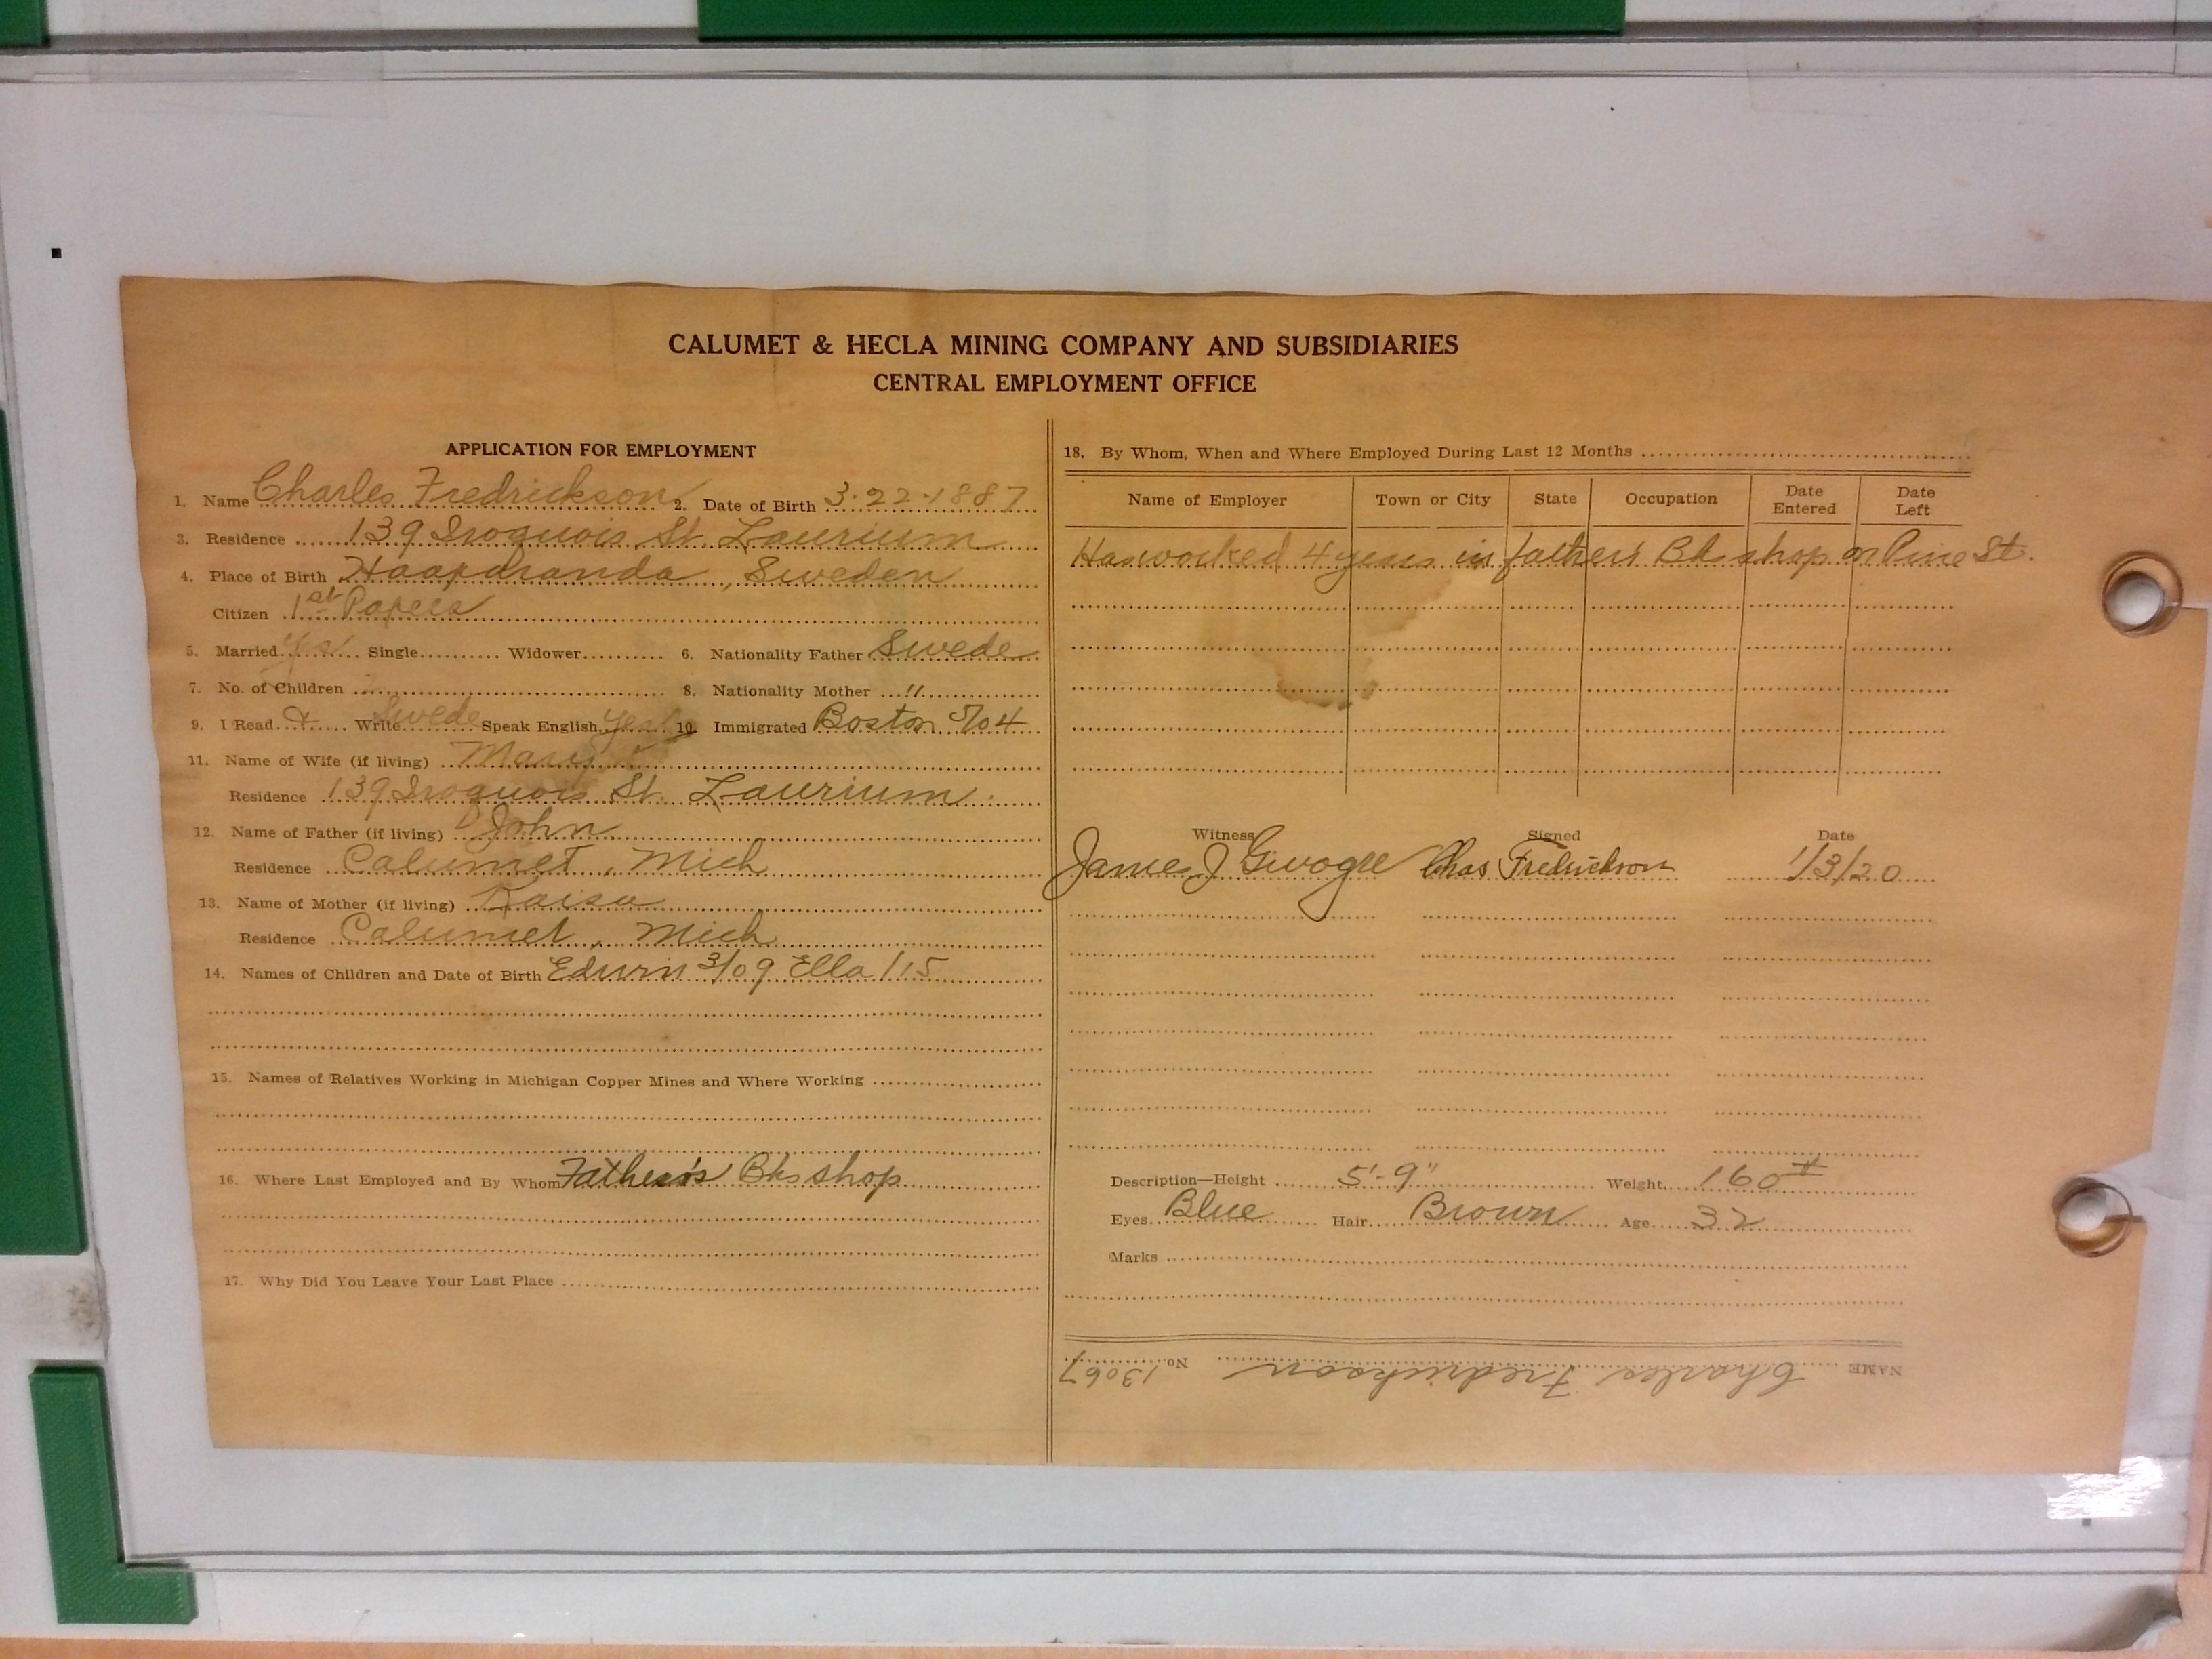 CALUMET & HECLA MINING COMPANY AND SUBSIDIARIES
CENTRAL EMPLOYMENT OFFICE
APPLICATION FOR EMPLOYMENT
1. Name Charles Fredrickson 2. Date of Birth 3-22-1887
3. Residence 139 Iroquois St. Laurium
4. Place of Birth Haapdranda, Sweden
Citizen 1st Papers
5. Married Yes Single Widower 6. Nationality Father Swede
7. No. of Children 8. Nationality Mother "
9. I Read & Write Swede Speak English Yes 10. Immigrated Boston 5/04
11. Name of Wife (if living) Mary
Residence 139 Iroquois St. Laurium
12. Name of Father (if living) John
Residence Calumet, Mich
13. Name of Mother (if living) Kaisa
Residence Calumet, Mich
14. Names of Children and Date of Birth Edwin 3/09 Ella 1/15
15. Names of Relatives Working in Michigan Copper Mines and Where Working
16. Where Last Employed and By Whom Father's Bksshop
17. Why Did You Leave Your Last Place
18. By Whom, When and Where Employed During Last 12 Months
Name of Employer Town or City State Occupation Date Entered Date Left
Has worked 4 years in father's Bk shop on Pine St.
Witness Signed Date
James J Chas Fredrickson 1/3/20
Description—Height 5'-9" Weight 160#
Eyes Blue Hair Brown Age 32
Marks
NAME Charles Fredrickson No. 13067